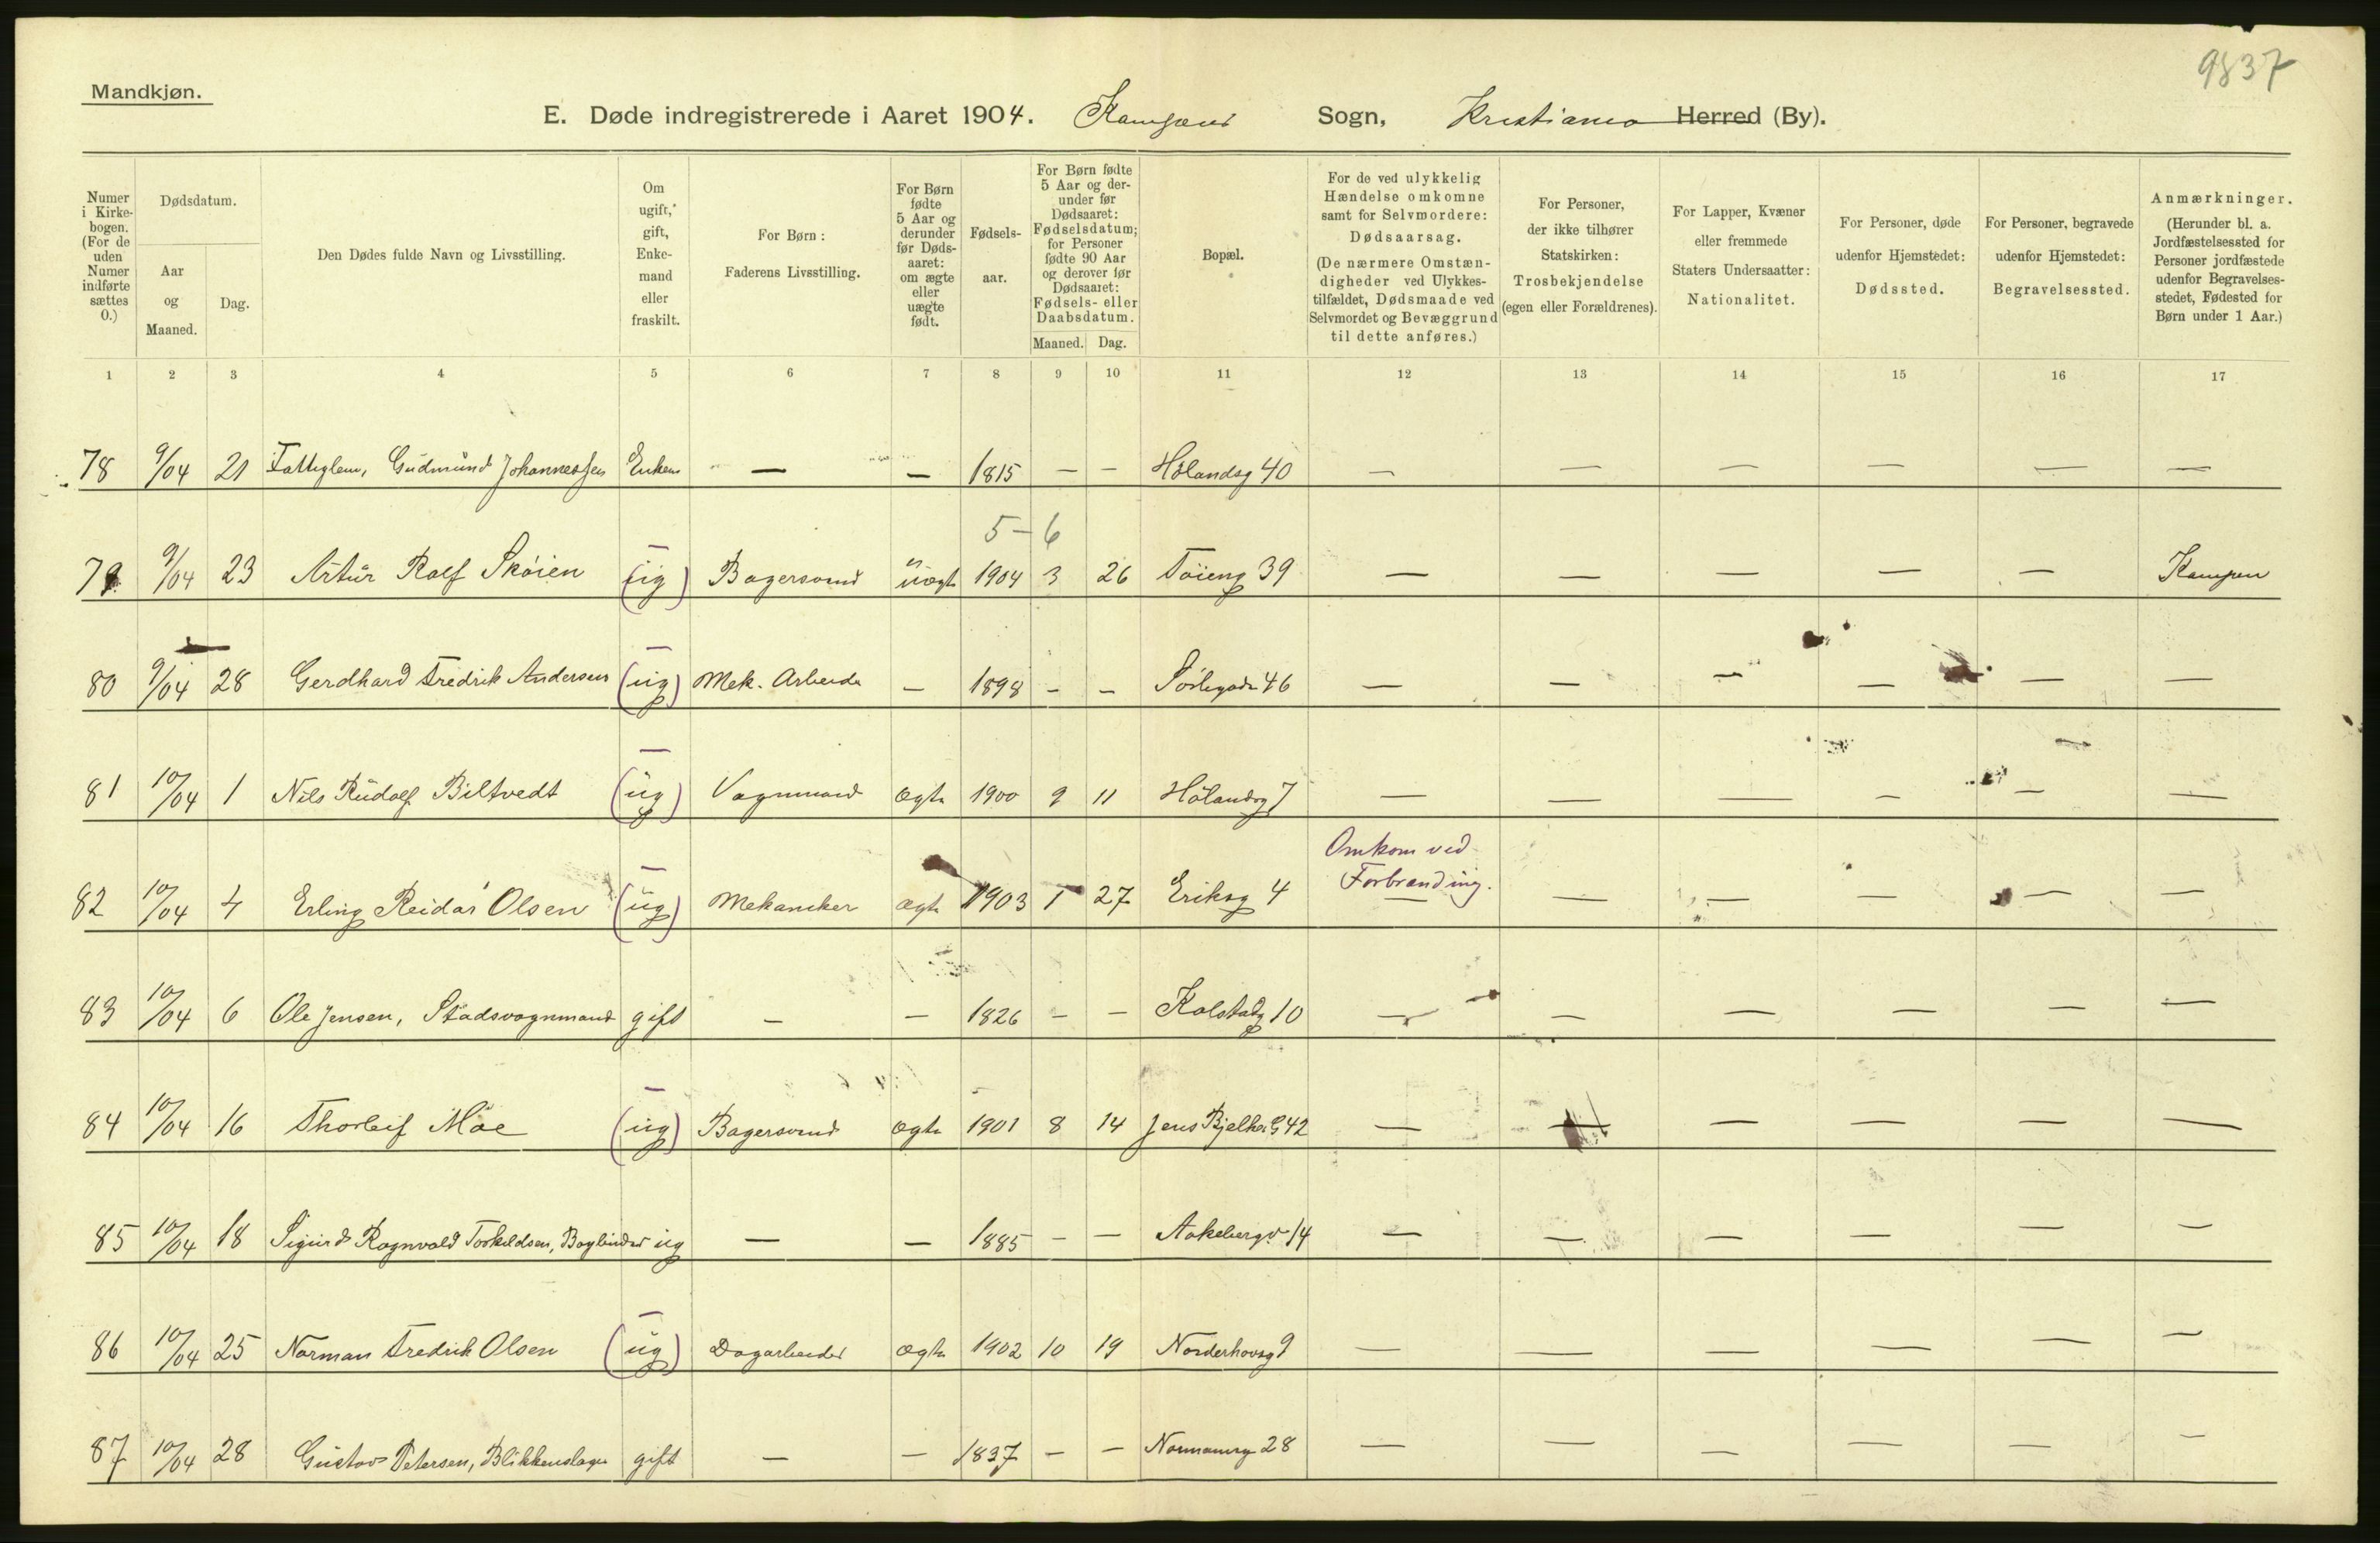 9837
Mandkjøn.
E. Døde indregistrerede i Aaret 1904. Kampens Sogn, Kristiania Herred (By).
Numer i Kirkebogen. (For de uden Numer indførte sættes 0.)
Dødsdatum.
Aar og Maaned.
Dag.
Den Dødes fulde Navn og Livsstilling.
Om ugift, gift, Enkemand eller fraskilt.
For Børn: Faderens Livsstilling.
For Børn fødte 5 Aar og derunder før Dødsaaret: om ægte eller uægte født.
Fødselsaar.
For Børn fødte 5 Aar og derunder før Dødsaaret: Fødselsdatum; for Personer fødte 90 Aar og derover før Dødsaaret: Fødsels- eller Daabsdatum.
Maaned. Dag.
Bopæl.
For de ved ulykkelig Hændelse omkomne samt for Selvmordere: Dødsaarsag. (De nærmere Omstændigheder ved Ulykkestilfældet, Dødsmaade ved Selvmordet og Bevæggrund til dette anføres.)
For Personer, der ikke tilhører Statskirken: Trosbekjendelse (egen eller Forældrenes).
For Lapper, Kvæner eller fremmede Staters Undersaatter: Nationalitet.
For Personer, døde udenfor Hjemstedet: Dødssted.
For Personer, begravede udenfor Hjemstedet: Begravelsessted.
Anmærkninger. (Herunder bl. a. Jordfæstelsessted for Personer jordfæstede udenfor Begravelsesstedet, Fødested for Børn under 1 Aar.)
1 2 3 4 5 6 7 8 9 10 11 12 13 14 15 16 17
78 9/04 21 Fattiglem, Gudmund Johannessen Enkem — — 1815 — — Hölandsg 40 — — — — — —
5-6
79 9/04 23 Artur Rolf Sköien (ug) Bagersvend uægte 1904 3 26 Töieng 39 — — — — — Kampen
80 9/04 28 Gerdhard Fredrik Andersen (ug) Mek. Arbeide — 1898 — — Sörligade 46 — — — — — —
81 10/04 1 Nils Rudolf Biltvedt (ug) Vognmand ægte 1900 9 11 Hölandsg 7 — — — — — —
Omkom ved Forbrænding.
82 10/04 4 Erling Reidar Olsen (ug) Mekaniker ægte 1903 1 27 Eriksg 4 — — — — — —
83 10/04 6 Ole Jensen, Stadsvognmand gift — — 1826 — — Kolstadg 10 — — — — — —
84 10/04 16 Thorleif Moe (ug) Bagersvend ægte 1901 8 14 Jens Bjelkes G 42 — — — — — —
85 10/04 18 Sigurd Rognvald Torkildsen, Bogbinder ug — — 1885 — — Aakebergv 14 — — — — — —
86 10/04 25 Norman Fredrik Olsen (ug) Dagarbeider ægte 1902 10 19 Norderhovsg 9 — — — — — —
87 10/04 28 Gustav Petersen, Blikkenslager gift — — 1837 — — Normannsg 28 — — — — — —